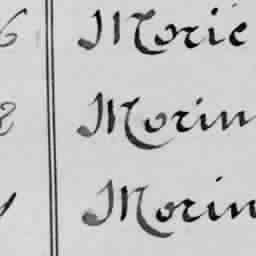 6 Morie
2 Morin
Morin